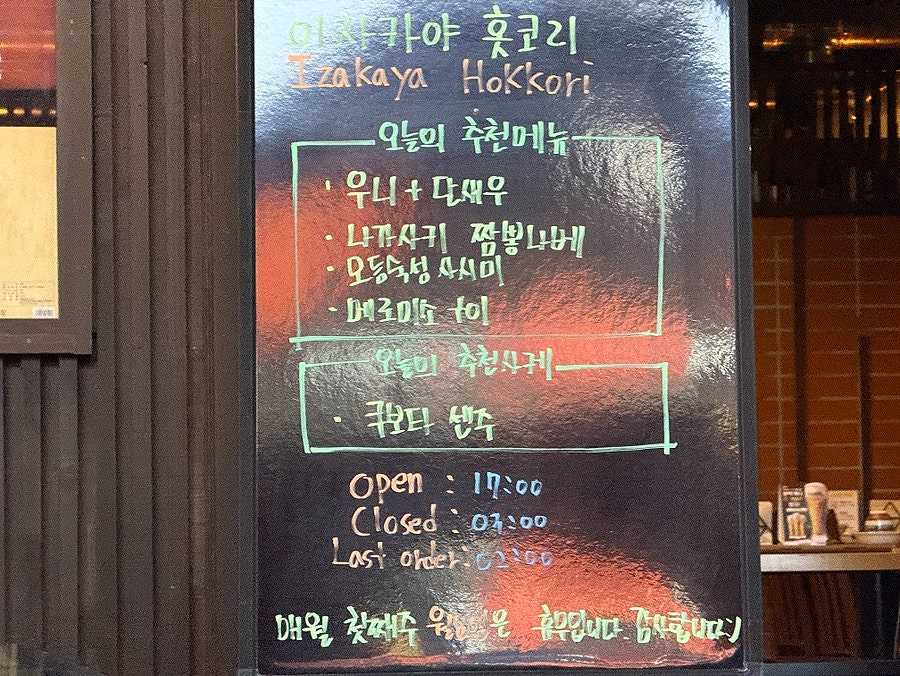 이자카야 홋코리
Izakaya Hokkori
오늘의 추천메뉴
· 우니 + 단새우
· 나가사키 짬뽕나베
· 모듬숙성 사시미
· 메로미소
오늘의 추천사케
· 쿠보타 센주
Open : 17:00
Closed : 03:00
Last order: 02:00
매월 첫째주 은 휴무입니다. 감사합니다:)